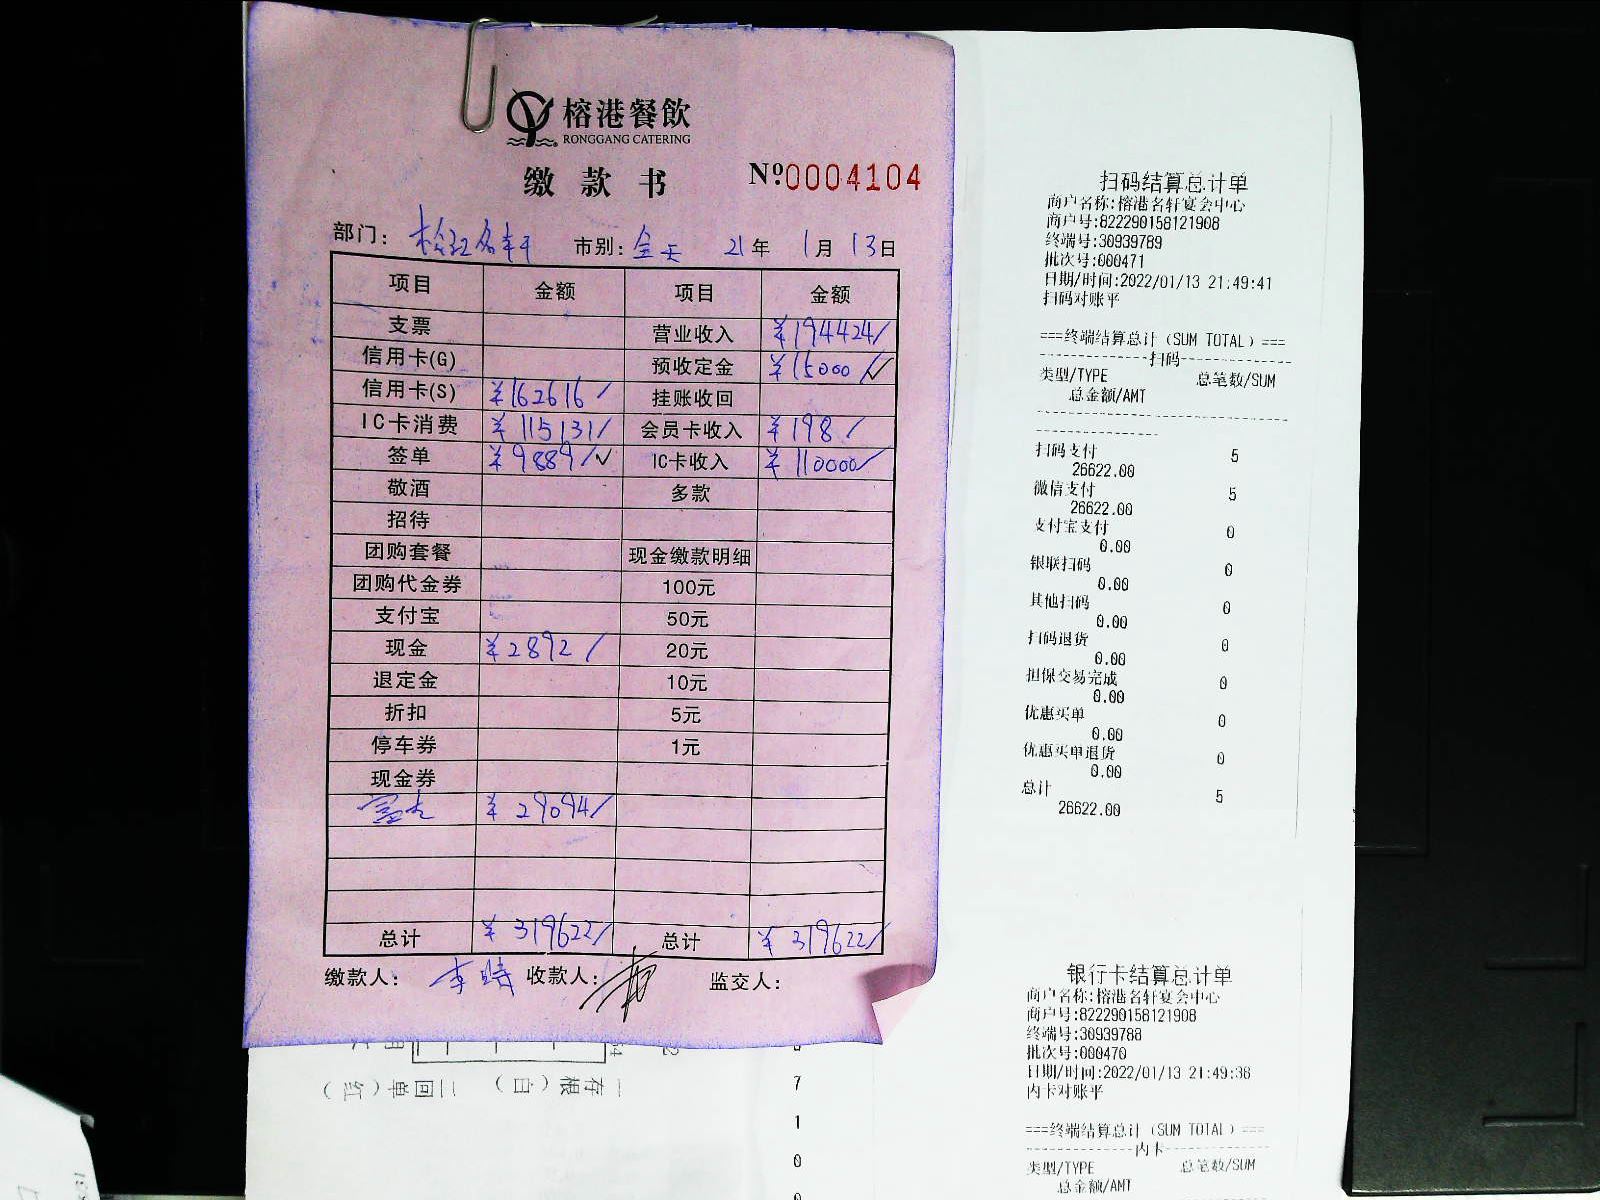 榕港餐飲
RONGGANG CATERING
缴款书 №0004104
部门: 榕江名轩 市别: 全天 21年 1月 13日
项目 金额 项目 金额
支票 营业收入 ¥194424/
信用卡(G) 预收定金 ¥15000/✓
信用卡(S) ¥162616/ 挂账收回
IC卡消费 ¥115131/ 会员卡收入 ¥198/
签单 ¥9889/✓ IC卡收入 ¥110000/
敬酒 多款
招待
团购套餐 现金缴款明细
团购代金券 100元
支付宝 50元
现金 ¥2892/ 20元
退定金 10元
折扣 5元
停车券 1元
现金券
¥29094/
总计 ¥319622/ 总计 ¥319622/
缴款人: 李 收款人: 监交人:
一存根(白) 二回单(红)
7
1
0
扫码结算总计单
商户名称:榕港名轩宴会中心
商户号:822290158121908
终端号:30939789
批次号:000471
日期/时间:2022/01/13 21:49:41
扫码对账平
===终端结算总计(SUM TOTAL)===
---------------扫码---------------
类型/TYPE 总笔数/SUM
总金额/AMT
扫码支付 5
26622.00
微信支付 5
26622.00
支付宝支付 0
0.00
银联扫码 0
0.00
其他扫码 0
0.00
扫码退货 0
0.00
担保交易完成 0
0.00
优惠买单 0
0.00
优惠买单退货 0
0.00
总计 5
26622.00
银行卡结算总计单
商户名称:榕港名轩宴会中心
商户号:822290158121908
终端号:30939788
批次号:000470
日期/时间:2022/01/13 21:49:36
内卡对账平
===终端结算总计(SUM TOTAL)===
---------------内卡---------------
类型/TYPE 总笔数/SUM
总金额/AMT